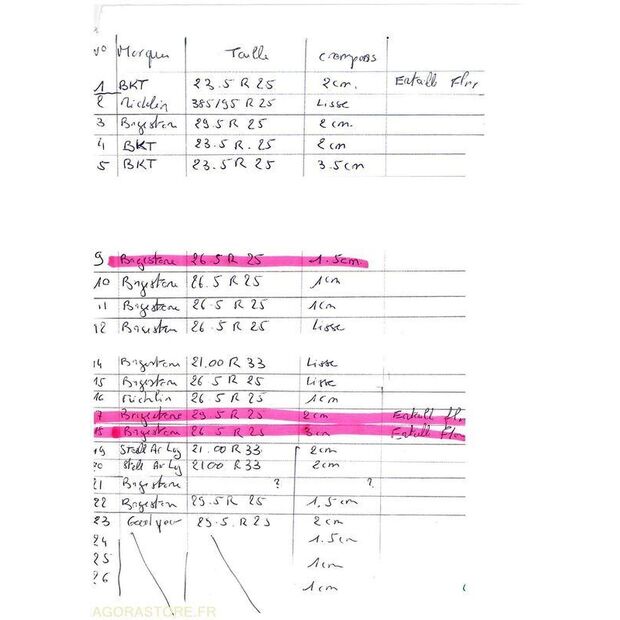 N° Marque Taille Crampons
1 BKT 23.5 R 25 2cm. Entaille Flanc
2 Michlin 385/95 R 25 Lisse
3 Brigestone 29.5 R 25 2 cm.
4 BKT 23.5 R. 25 2 cm
5 BKT 23.5 R 25 3.5 cm
9 Brigestone 26.5 R 25 1.5cm.
10 Brigestone 26.5 R 25 1cm
11 Brigestone 26.5 R 25 1cm
12 Brigestone 26.5 R 25 Lisse
14 Brigestone 21.00 R 33 Lisse
15 Brigestone 26.5 R 25 Lisse
16 Michlin 26.5 R 25 1cm
17 Brigestone 29.5 R 25 2cm
18 Brigestone 26.5 R 25 3cm
19 21.00 R 33 2cm
20 2100 R 33 2cm
21 Brigestone ? ?
22 Brigestone 29.5 R 25 1,5cm
23 29.5.R 25 2cm
24 1.5cm
25 1cm
26 1cm
AGORASTORE.FR